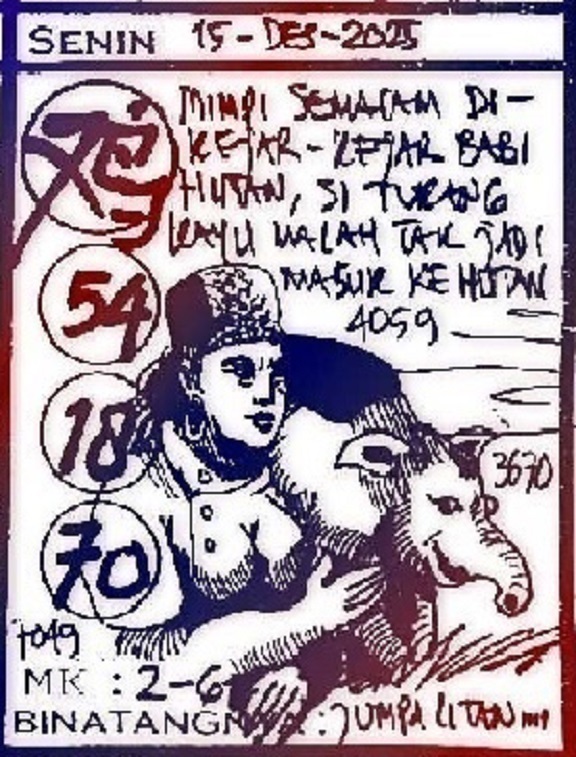 SENIN 15-DES-2025
MIMPI SEMALAM DI-
KEJAR-KEJAR BABI
HUTAN, SI TUKANG
KAYU MALAH TAK JADI
MASUK KE HUTAN
4059
54
18
3670
70
7049
MK : 2-6
BINATANGNYA : JUMPA LITAN